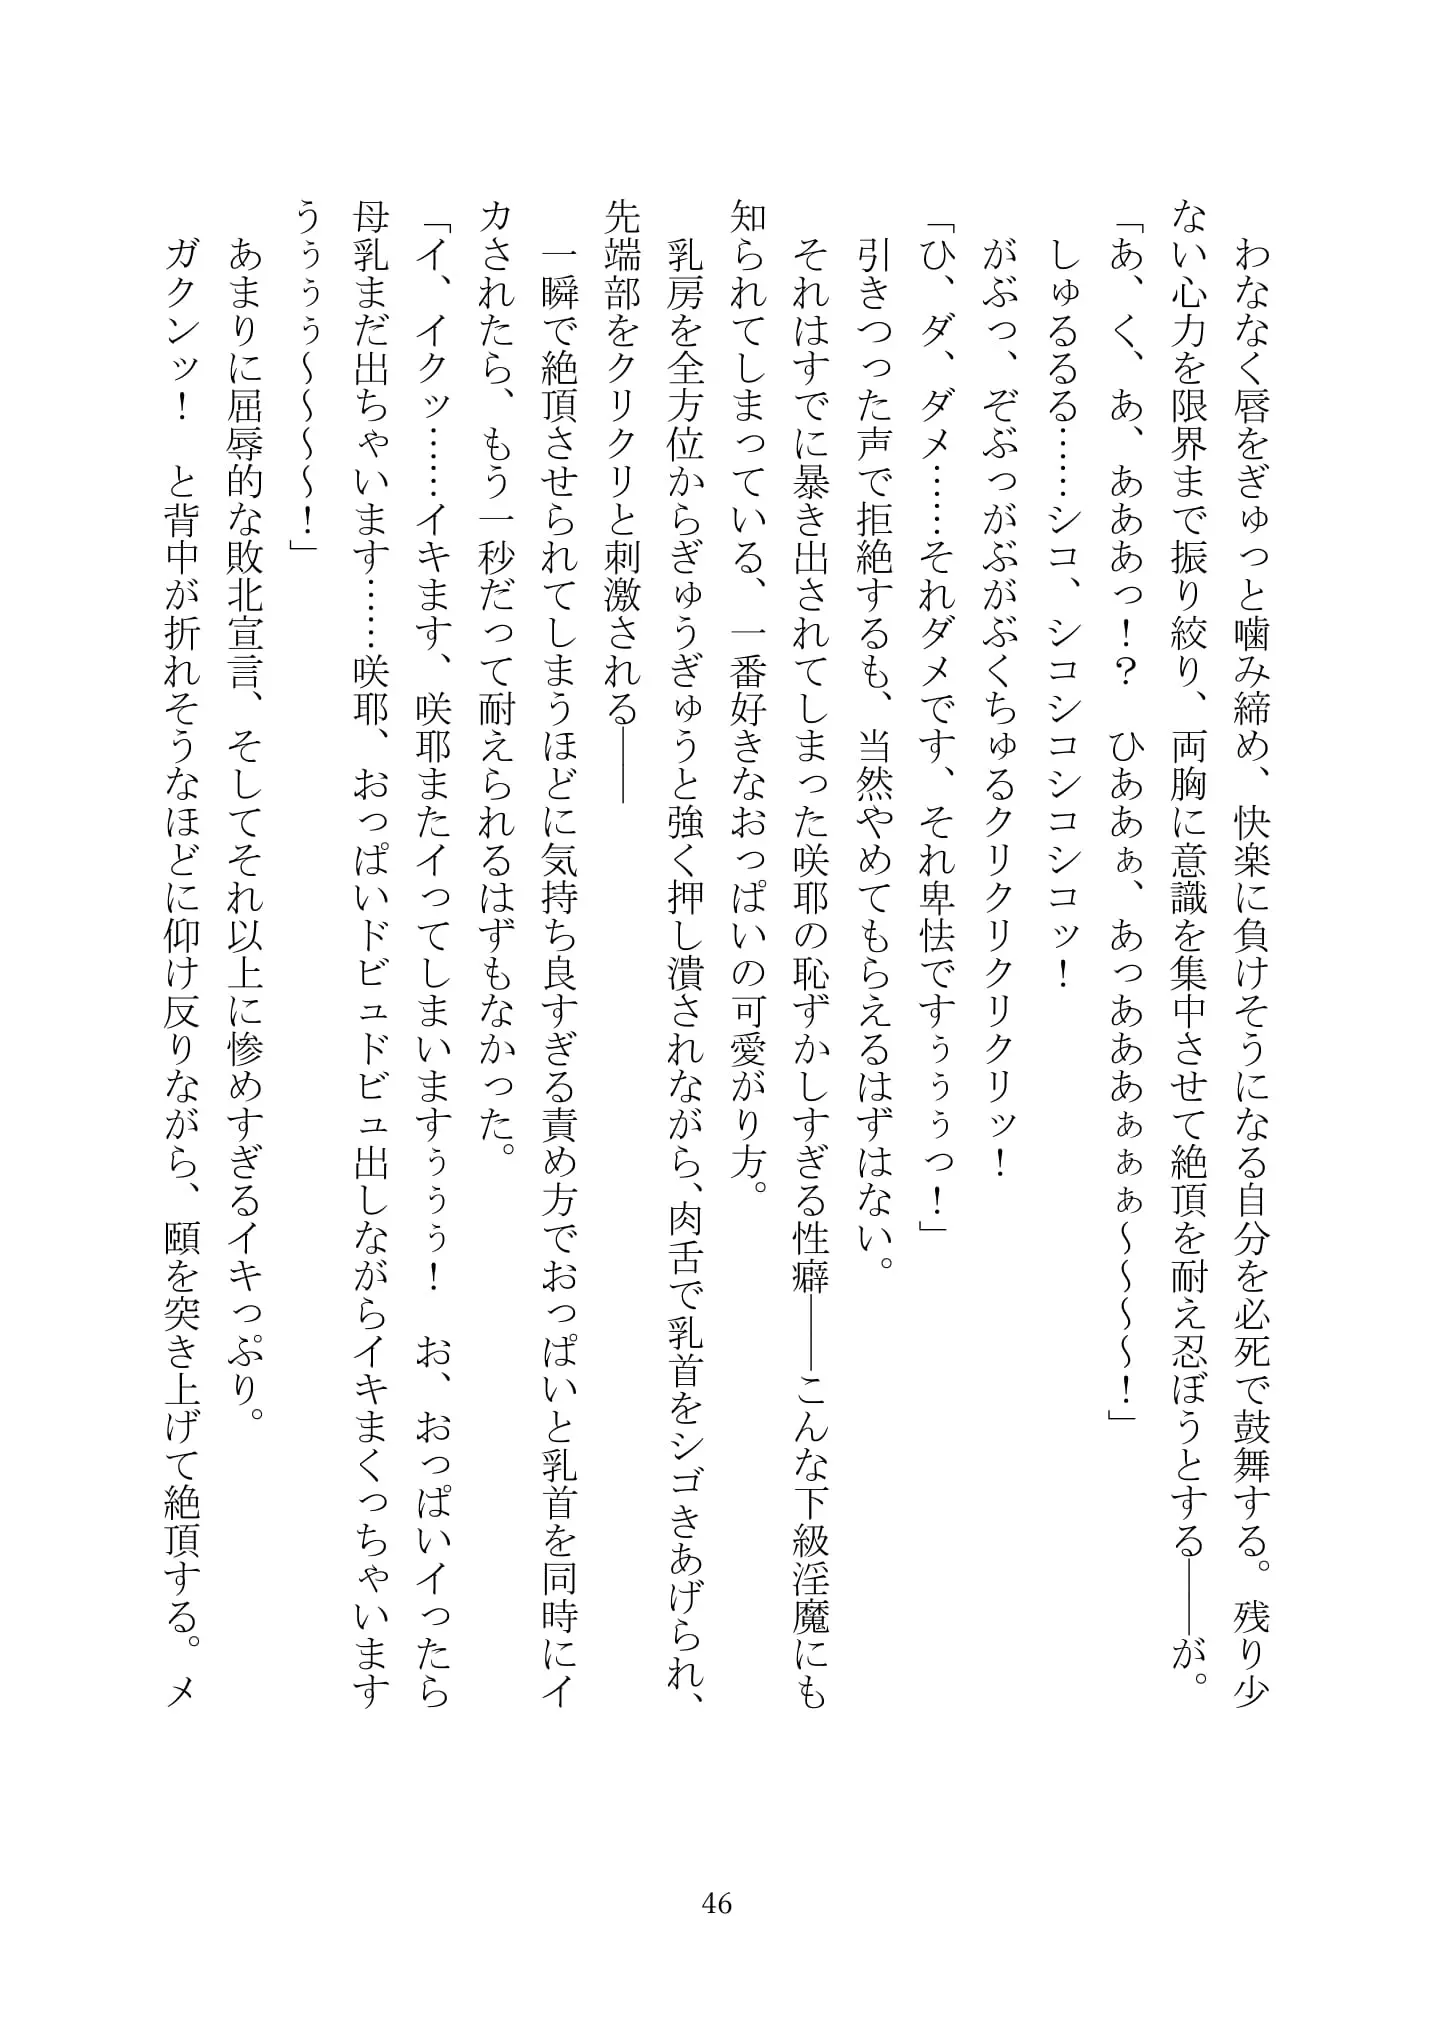 わななく唇をぎゅっと噛み締め、快楽に負けそうになる自分を必死で鼓舞する。残り少
ない心力を限界まで振り絞り、両胸に意識を集中させて絶頂を耐え忍ぼうとする――が。
「あ、く、あ、あああっ！？　ひああぁ、あっあああぁぁぁ～～～～！」
しゅるるる……シコ、シコシコシコシコッ！
がぶっ、ぞぶっがぶがぶくちゅるクリクリクリクリッ！
「ひ、ダ、ダメ……それダメです、それ卑怯ですぅぅぅっ！」
引きつった声で拒絶するも、当然やめてもらえるはずはない。
それはすでに暴き出されてしまった咲耶の恥ずかしすぎる性癖――こんな下級淫魔にも
知られてしまっている、一番好きなおっぱいの可愛がり方。
乳房を全方位からぎゅうぎゅうと強く押し潰されながら、肉舌で乳首をシゴきあげられ、
先端部をクリクリと刺激される――
一瞬で絶頂させられてしまうほどに気持ち良すぎる責め方でおっぱいと乳首を同時にイ
カされたら、もう一秒だって耐えられるはずもなかった。
「イ、イクッ……イキます、咲耶またイってしまいますぅぅぅ！　お、おっぱいイったら
母乳まだ出ちゃいます……咲耶、おっぱいドビュドビュ出しながらイキまくっちゃいます
うぅぅぅ～～～～！」
あまりに屈辱的な敗北宣言、そしてそれ以上に惨めすぎるイキっぷり。
ガクンッ！　と背中が折れそうなほどに仰け反りながら、頤を突き上げて絶頂する。メ
46